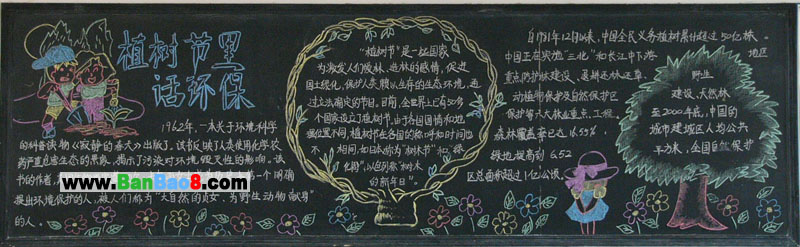 植树节里
话环保
1962年,一本关于环境科学
的科普读物《寂静的春天》出版了,该书反映了人类使用化学农
药严重危害生态的景象,揭示了污染对环境毁灭性的影响。该
书的作者,
第一个明确
提出环境保护的人,被人们称为"大自然的贞女、为野生动物献身"
的人。
www.BanBao8.com
"植树节"是一些国家
为激发人们爱林、造林的感情,促进
国土绿化,保护人类赖以生存的生态环境,通
过立法确定的节日。目前,全世界上已有50多
个国家设立了植树节。由于各国国情和地
理位置不同,植树节在各国的称呼和时间也
不相同,如日本称为"树木节"和"绿
化周",以色列称"树木
的新年日"。
自1981年12月以来,中国全民义务植树累计超过50亿株。
中国正在实施"三北"和长江中下游
地区
重点防护林建设、退耕还林还草、
动植物保护及自然保护区
保护等六大林业重点工程。
森林覆盖率已达16.55%
绿地提高到6.52
区总面积超过1亿公顷。
野生
建设、天然林
至2000年底,中国的
城市建成区人均公共
平方米,全国自然保护